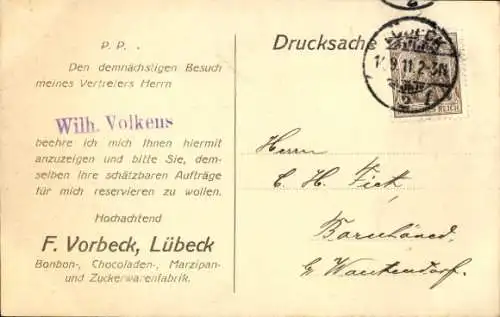 P. P. .
Den demnächstigen Besuch
meines Vertreters Herrn
Wilh. Volkens
beehre ich mich Ihnen hiermit
anzuzeigen und bitte Sie, dem-
selben Ihre schätzbaren Aufträge
für mich reservieren zu wollen.
Hochachtend
F. Vorbeck, Lübeck
Bonbon-, Chocoladen-, Marzipan-
und Zuckerwarenfabrik.
Drucksache
9.11.2-3N
REICH
Herrn
C. H. Fick,
Bornhöved
b/ Wankendorf.